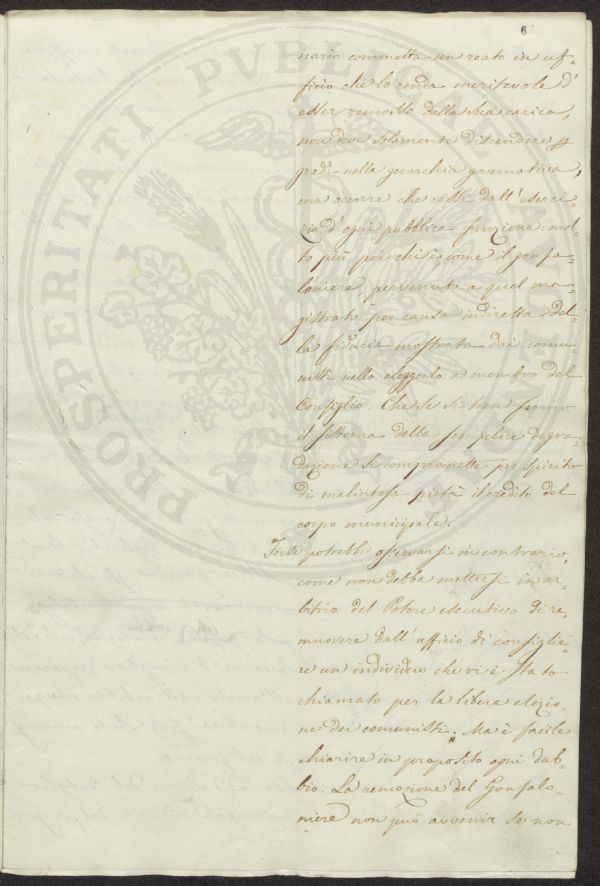 6
nario commetta un reato in uf-
ficio che lo renda meritevole d'
esser remosso dalla sua carica,
non deve solamente discendere
gradi nella gerarchia governativa,
ma occorre che cessi dall'eserci-
zio d'ogni pubblica funzione: mol-
to più poi chi è come il gonfa-
loniere, pervenuto a quel ma-
gistrato per causa indiretta del-
la fiducia mostrata dai comu-
nisti nello eleggerlo a membro del
Consiglio. Che se si tien fermo
il sistema della semplice degra-
dazione si compromette per spirito
di malintesa pietà il credito del
corpo municipale.
Forse potrebbe osservarsi in contrario,
come non debba mettersi in ar-
bitrio del Potere esecutivo di re-
muovere dall'ufficio di consiglie-
re un individuo che vi è stato
chiamato per la libera elezio-
ne dei comunisti. Ma è facile
chiarire in proposito ogni dub-
bio. La remozione del Gonfalo-
niere non può avvenir se non
PROSPERITATI PUBLICAE